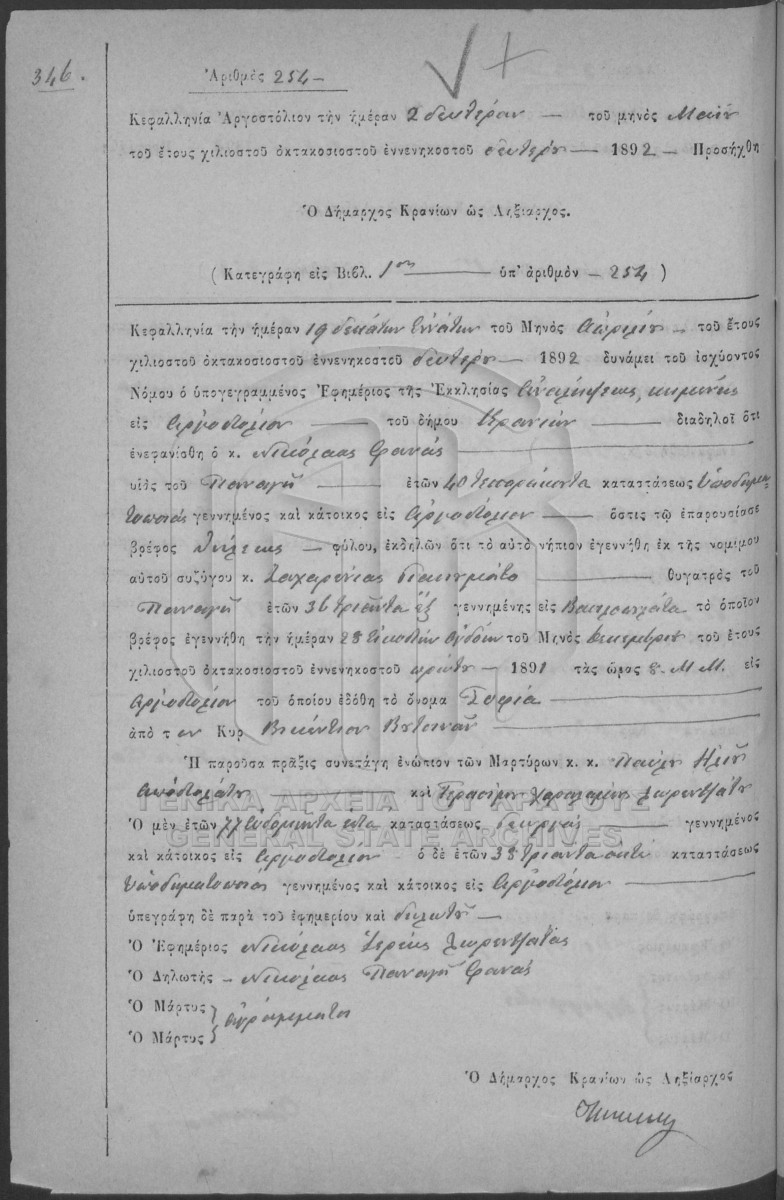 346.
Ἀριθμὸς 254 —
Κεφαλληνία Ἀργοστόλιον τὴν ἡμέραν 2 δευτέραν — τοῦ μηνὸς Μαΐου
τοῦ ἔτους χιλιοστοῦ ὀκτακοσιοστοῦ ἐννενηκοστοῦ δευτέρου — 1892 — Προσήχθη
Ὁ Δήμαρχος Κρανίων ὡς Ληξίαρχος.
( Κατεγράφη εἰς Βιβλ. 1ον — ὑπ' ἀριθμὸν — 254 )
Κεφαλληνία τὴν ἡμέραν 19 δεκάτην ἐννάτην τοῦ Μηνὸς Ἀπριλίου — τοῦ ἔτους
χιλιοστοῦ ὀκτακοσιοστοῦ ἐννενηκοστοῦ δευτέρου — 1892 δυνάμει τοῦ ἰσχύοντος
Νόμου ὁ ὑπογεγραμμένος Ἐφημέριος τῆς Ἐκκλησίας Ἀναλήψεως, κειμένης
εἰς Ἀργοστόλιον — τοῦ δήμου Κρανίων — διαδηλοῖ ὅτι
ἐνεφανίσθη ὁ κ. Νικόλαος Φανᾶς —
υἱὸς τοῦ Παναγῆ — ἐτῶν 40 τεσσαράκοντα καταστάσεως Ὑποδημα-
τοποιὸς γεννημένος καὶ κάτοικος εἰς Ἀργοστόλιον — ὅστις τῷ ἐπαρουσίασε
βρέφος θήλεως — φύλου, ἐκδηλῶν ὅτι τὸ αὐτὸ νήπιον ἐγεννήθη ἐκ τῆς νομίμου
αὐτοῦ συζύγου κ. Ζαχαρένιας — θυγατρὸς τοῦ
Παναγῆ ἐτῶν 36 τριάντα ἓξ γεννημένης εἰς τὸ ὁποῖον
βρέφος ἐγεννήθη τὴν ἡμέραν 28 εἰκοστὴν ὀγδόην τοῦ Μηνὸς Δεκεμβρίου τοῦ ἔτους
χιλιοστοῦ ὀκτακοσιοστοῦ ἐννενηκοστοῦ πρώτου — 1891 τὰς ὥρας 8. Μ.Μ. εἰς
Ἀργοστόλιον τοῦ ὁποίου ἐδόθη τὸ ὄνομα Σοφία —
ἀπὸ τον Κυρ Βικέντιον —
Ἡ παροῦσα πρᾶξις συνετάγη ἐνώπιον τῶν Μαρτύρων κ. κ. Παύλου Ἠλιοῦ
Ἀποστολάτου — καὶ Γερασίμου Χαραλάμπου Λωρεντζάτου
ΓΕΝΙΚΑ ΑΡΧΕΙΑ ΤΟΥ ΚΡΑΤΟΥΣ
Ὁ μὲν ἐτῶν 77 ἑβδομῆντα ἑπτὰ καταστάσεως Γεωργὸς — γεννημένος
GENERAL STATE ARCHIVES
καὶ κάτοικος εἰς Ἀργοστόλιον — ὁ δὲ ἐτῶν 38 τριάντα ὀκτὼ καταστάσεως
Ὑποδηματοποιὸς γεννημένος καὶ κάτοικος εἰς Ἀργοστόλιον —
ὑπεγράφη δὲ παρὰ τοῦ ἐφημερίου καὶ δηλωτοῦ —
Ὁ Ἐφημέριος Νικόλαος Ἱερεὺς Λωρεντζάτος
Ὁ Δηλωτὴς — Νικόλαος Παναγῆ Φανᾶς
Ὁ Μάρτυς } ἀγράμματοι
Ὁ Μάρτυς
Ὁ Δήμαρχος Κρανίων ὡς Ληξίαρχος